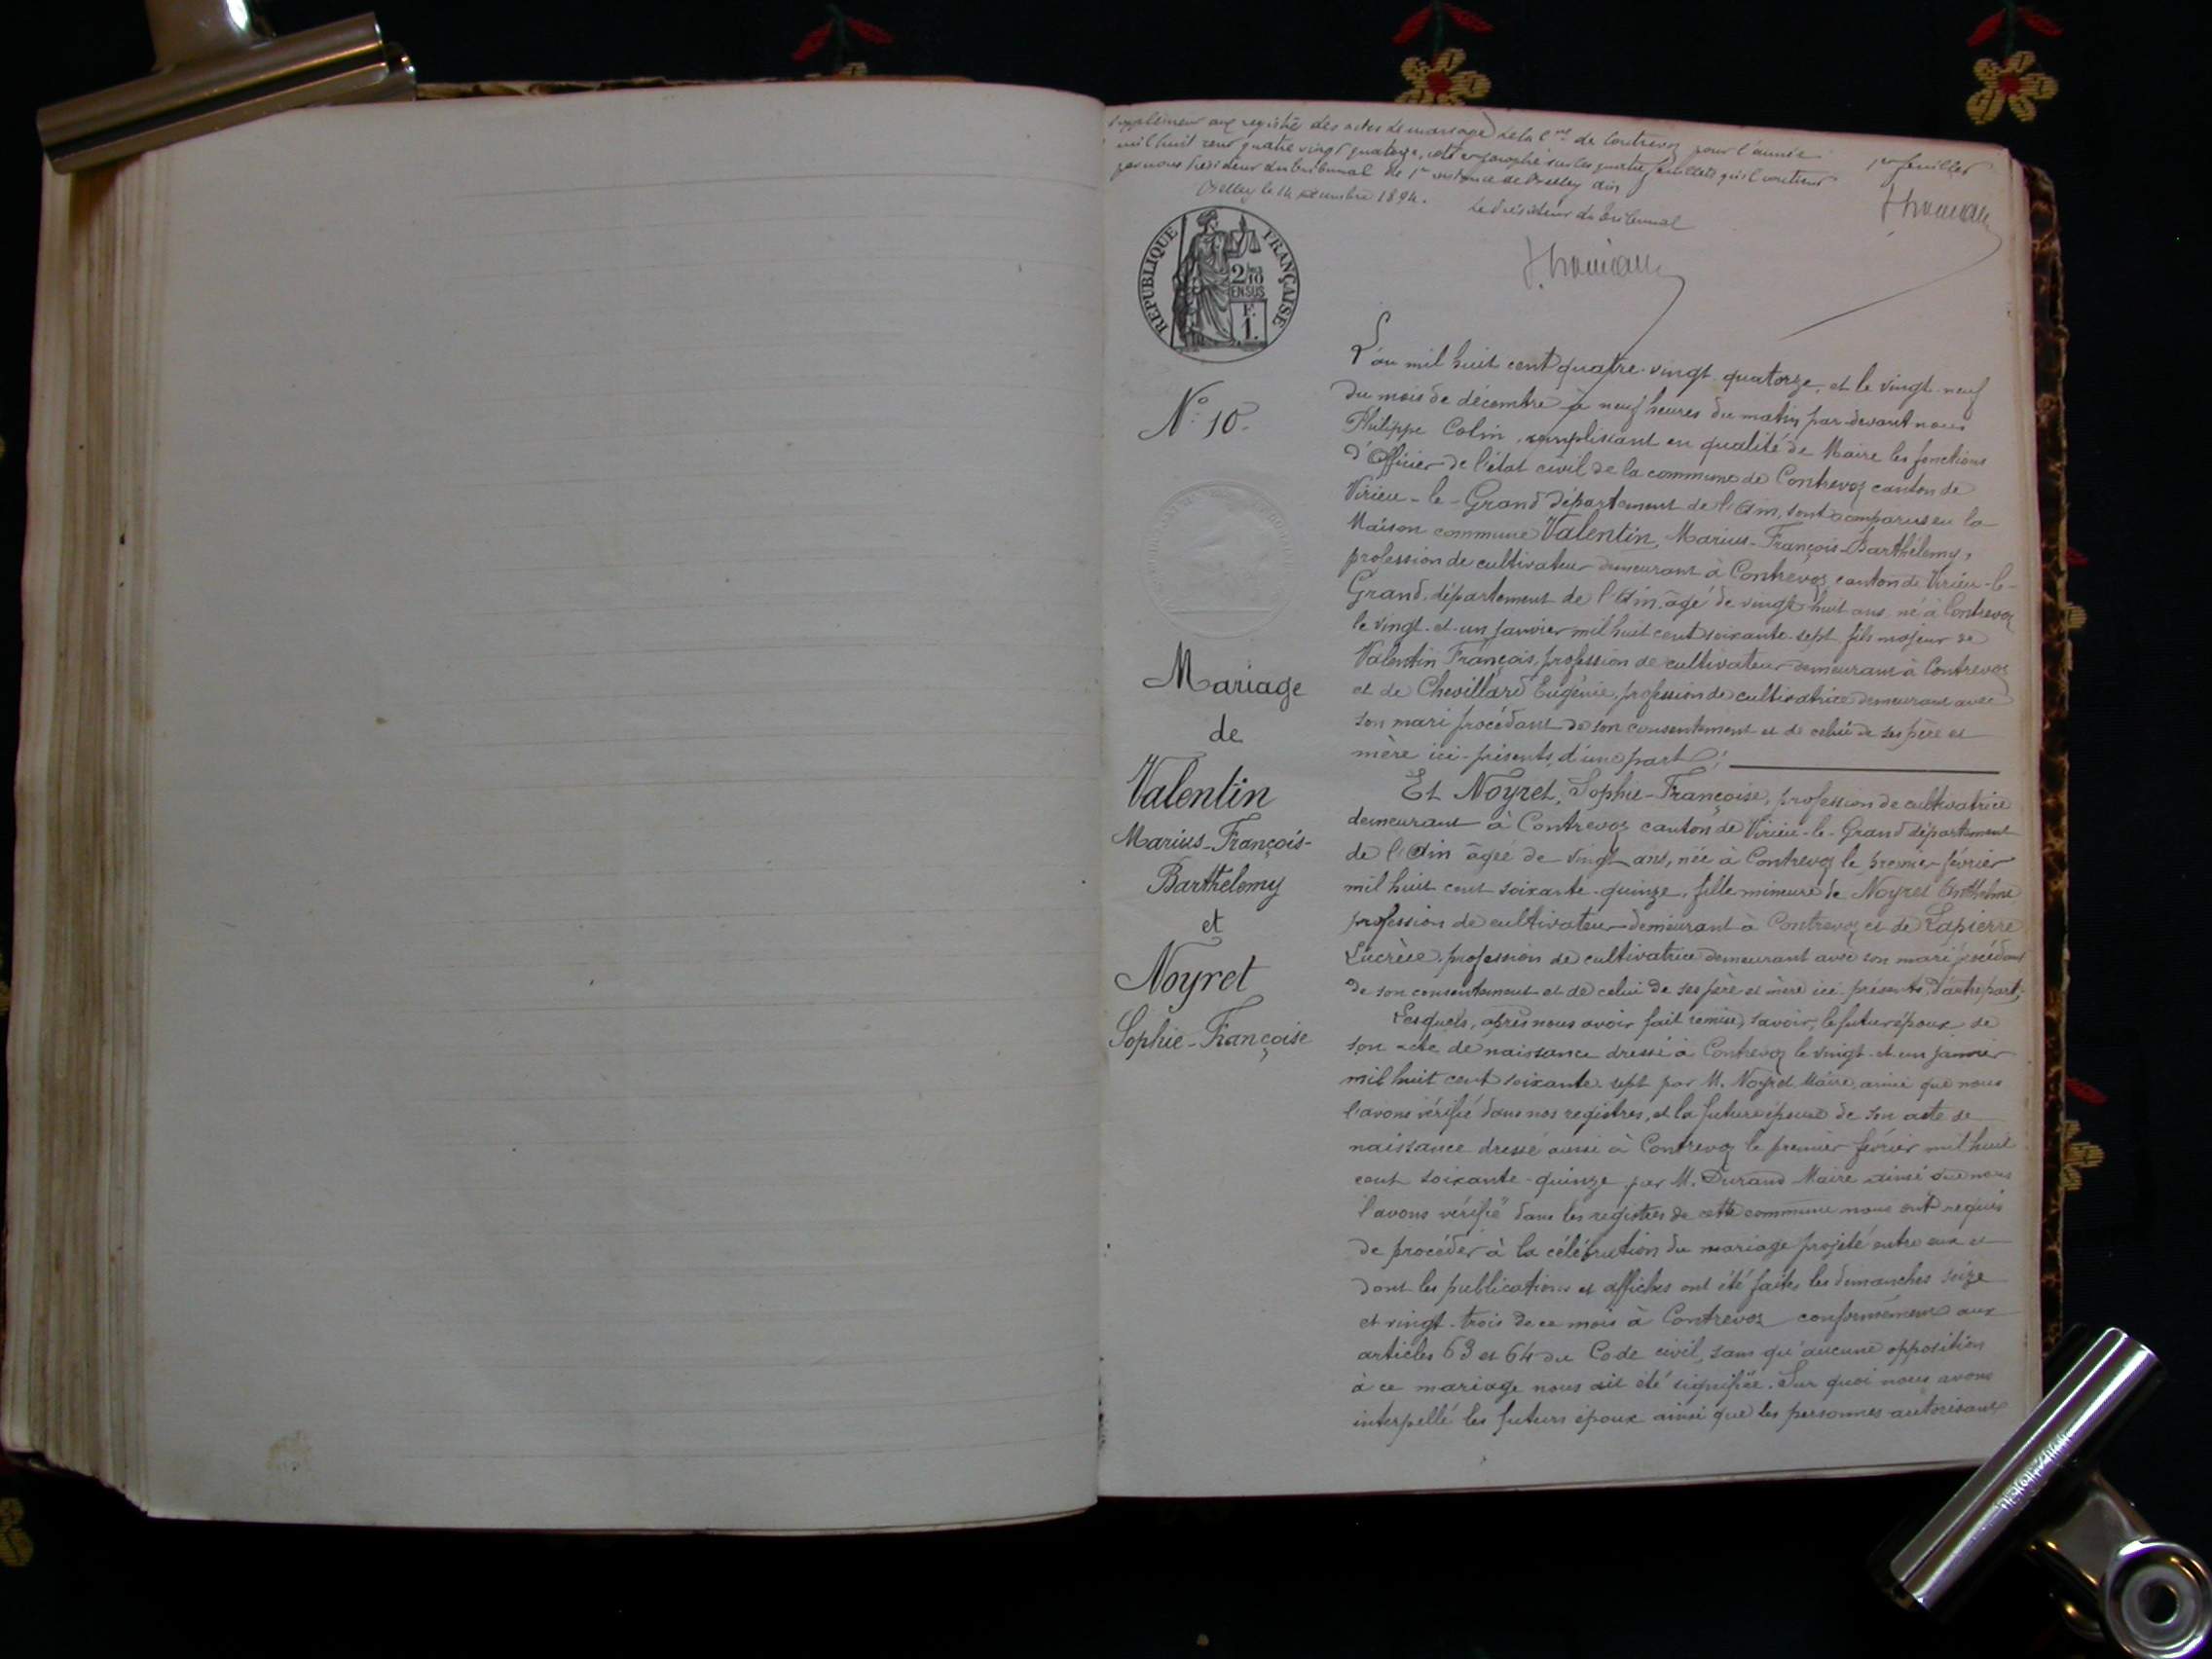 supplément aux registre des actes de mariage de la Cne de Contrevoz pour l'année
mil huit cent quatre vingt quatorze, coté et paraphé sur les quatre feuillets qu'il contient
par nous Président du tribunal de 1re instance de Belley Ain
Belley le 14 décembre 1894.
Le Président du Tribunal
1er feuillet
RÉPUBLIQUE FRANÇAISE
2/10
EN SUS
F.
1.
N.º 10.
Mariage
de
Valentin
Marius-François-
Barthelemy
et
Noyret
Sophie-Françoise
L'an mil huit cent quatre-vingt-quatorze, et le vingt-neuf
du mois de décembre à neuf heures du matin par-devant nous
Philippe Colin, remplissant en qualité de Maire les fonctions
d'Officier de l'état civil de la commune de Contrevoz canton de
Virieu-le-Grand département de l'Ain, sont comparus en la
Maison commune Valentin, Marius-François-Barthélemy,
profession de cultivateur demeurant à Contrevoz canton de Virieu-le-
Grand, département de l'Ain, âgé de vingt-huit ans, né à Contrevoz
le vingt-et-un janvier mil huit cent soixante-sept fils majeur de
Valentin François, profession de cultivateur demeurant à Contrevoz
et de Chevillard Eugénie, profession de cultivatrice demeurant avec
son mari procédant de son consentement et de celui de ses père et
mère ici-présents, d'une part;
Et Noyret, Sophie-Françoise, profession de cultivatrice
demeurant à Contrevoz canton de Virieu-le-Grand département
de l'Ain âgée de vingt ans, née à Contrevoz le premier février
mil huit cent soixante-quinze, fille mineure de Noyret Anthelme
profession de cultivateur demeurant à Contrevoz et de Lapierre
Lucrèce, profession de cultivatrice demeurant avec son mari procédant
de son consentement et de celui de ses père et mère ici présents, d'autre part;
Lesquels, après nous avoir fait remise, savoir, le futur époux de
son acte de naissance dressé à Contrevoz le vingt-et-un janvier
mil huit cent soixante-sept par M. Noyret Maire, ainsi que nous
l'avons vérifié dans nos registres, et la future épouse de son acte de
naissance dressé aussi à Contrevoz le premier février mil huit
cent soixante-quinze par M. Durand Maire ainsi que nous
l'avons vérifié dans les registres de cette commune nous ont requis
de procéder à la célébration du mariage projeté entre eux et
dont les publications et affiches ont été faites les dimanches seize
et vingt-trois de ce mois à Contrevoz conformément aux
articles 63 et 64 du Code civil, sans qu'aucune opposition
à ce mariage nous ait été signifiée. Sur quoi nous avons
interpellé les futurs époux ainsi que les personnes autorisant